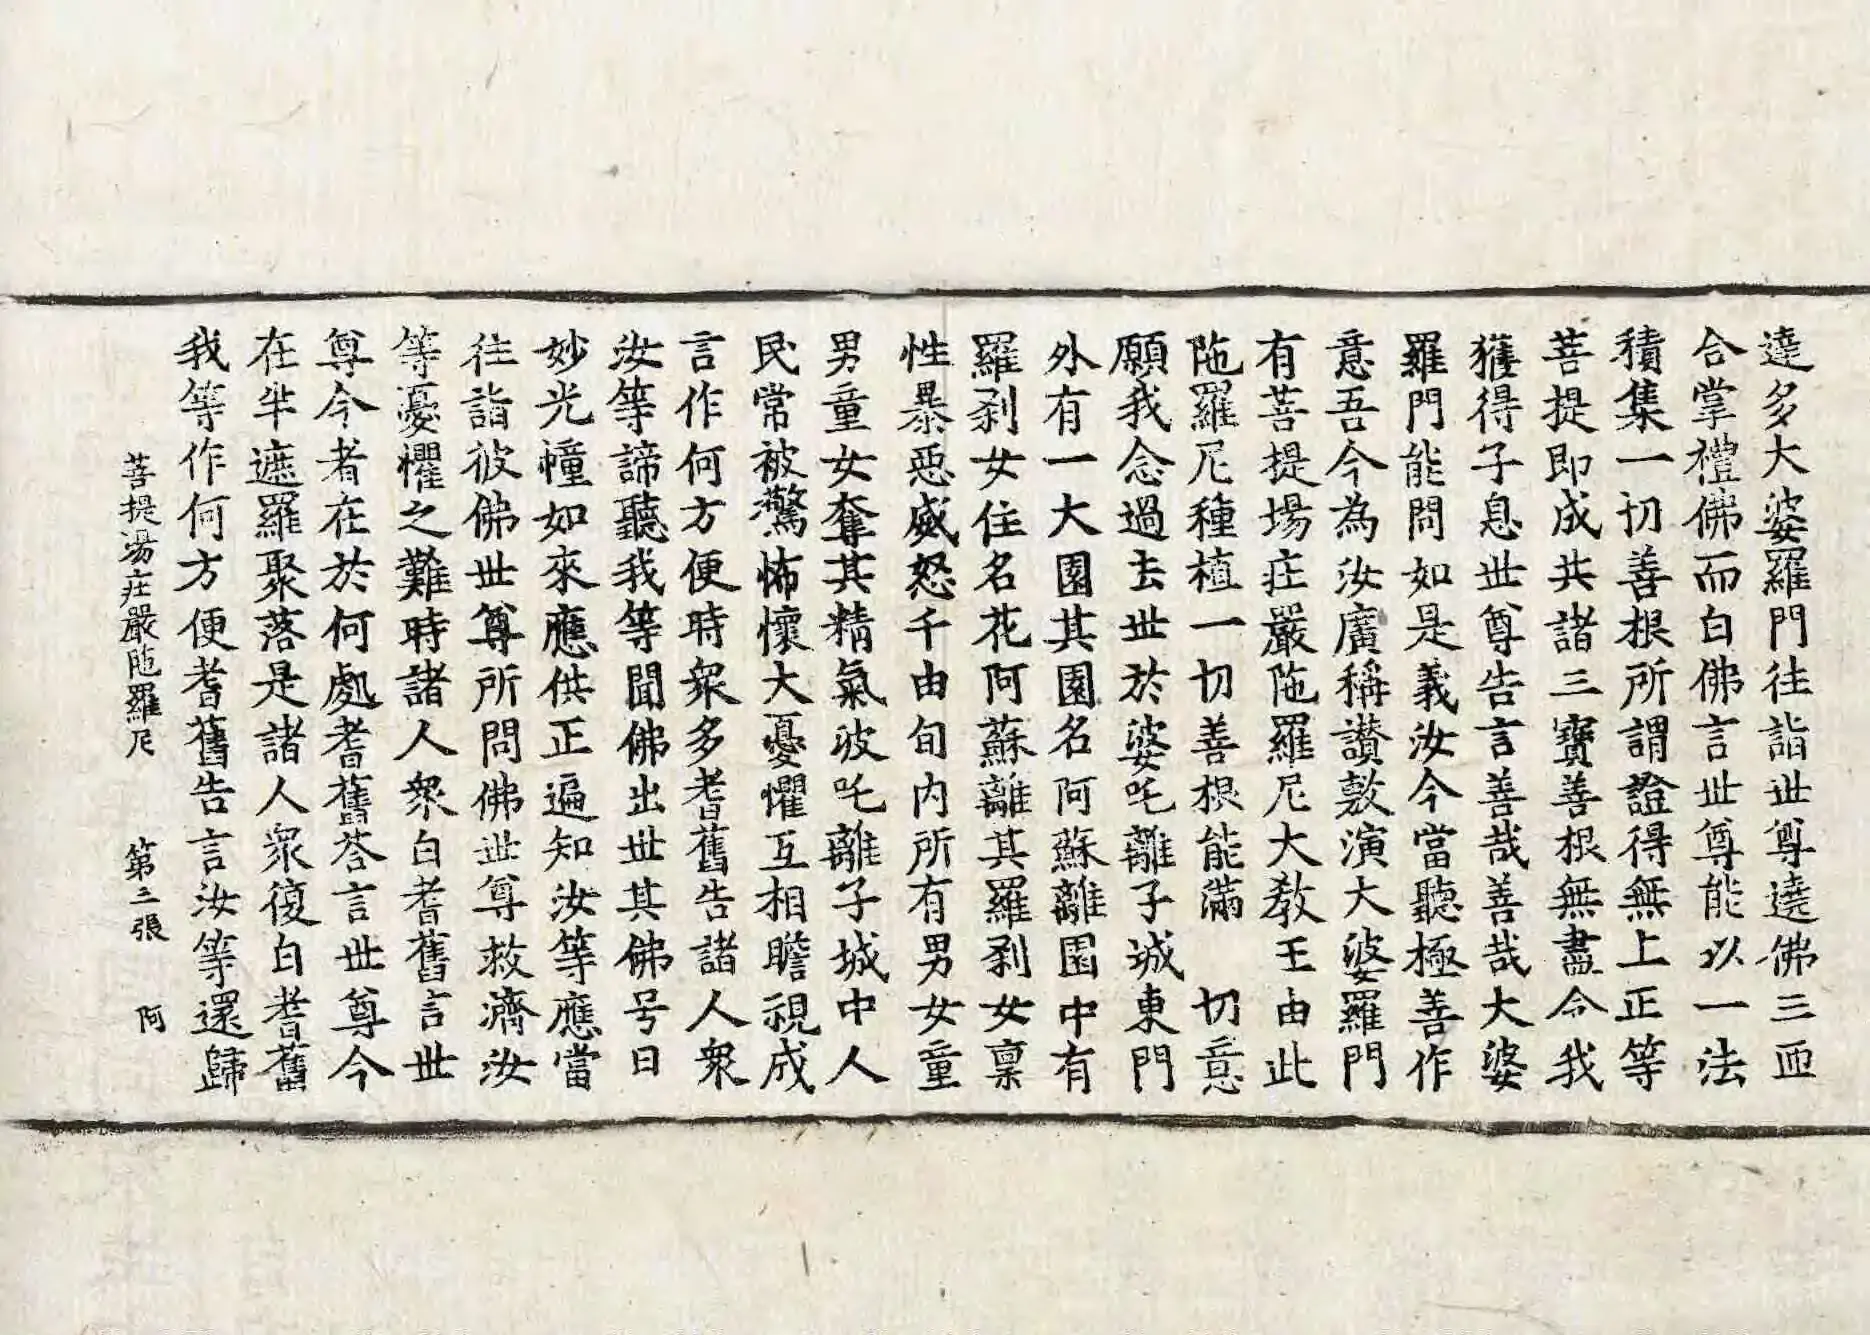 達多大婆羅門往詣世尊遶佛三匝
合掌禮佛而白佛言世尊能以一法
積集一切善根所謂證得無上正等
菩提即成共諸三寶善根無盡令我
獲得子息世尊告言善哉善哉大婆
羅門能問如是義汝今當聽極善作
意吾今為汝廣稱讚敷演大婆羅門
有菩提場庄嚴陁羅尼大教王由此
陁羅尼種植一切善根能滿 切意
願我念過去世於婆吒離子城東門
外有一大園其園名阿蘇離園中有
羅剎女住名花阿蘇離其羅剎女稟
性暴惡威怒千由旬內所有男女童
男童女奪其精氣波吒離子城中人
民常被驚怖懷大憂懼互相瞻視成
言作何方便時衆多耆舊告諸人衆
汝等諦聽我等聞佛出世其佛号曰
妙光幢如來應供正遍知汝等應當
往詣彼佛世尊所問佛世尊救濟汝
等憂懼之難時諸人衆白耆舊言世
尊今者在於何處耆舊荅言世尊今
在半遮羅聚落是諸人衆復白耆舊
我等作何方便耆舊告言汝等還歸
菩提場庄嚴陁羅尼 第三張 阿